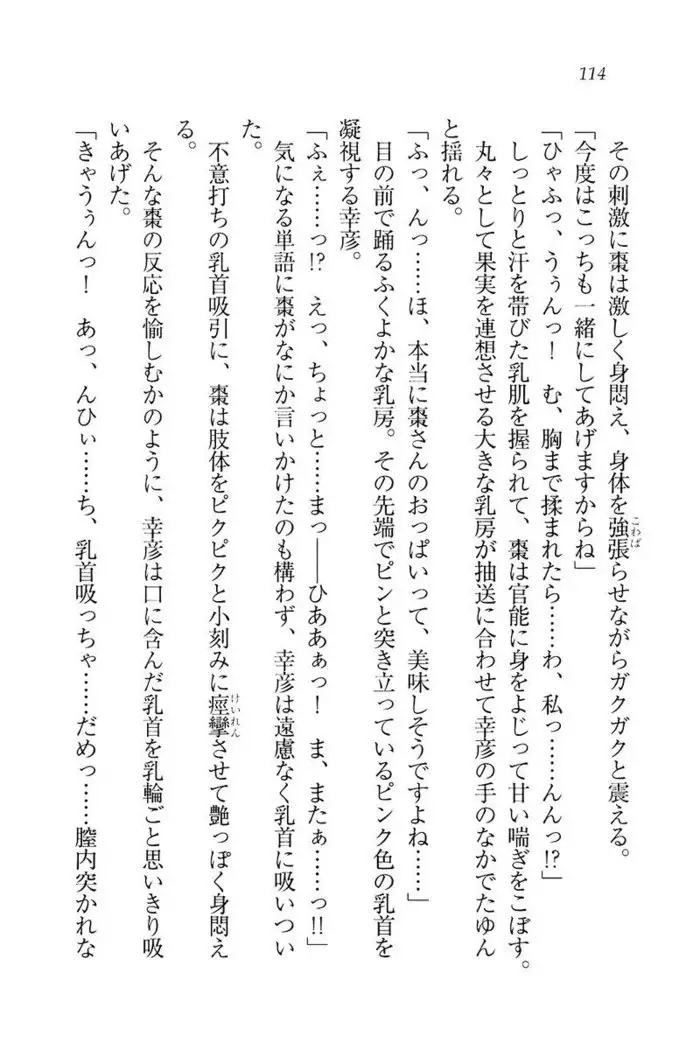 114
その刺激に棗は激しく身悶え、身体を強張らせながらガクガクと震える。
こわば
「今度はこっちも一緒にしてあげますからね」
「ひゃふっ、うぅんっ！　む、胸まで揉まれたら……わ、私っ……んんっ!?」
しっとりと汗を帯びた乳肌を握られて、棗は官能に身をよじって甘い喘ぎをこぼす。
丸々として果実を連想させる大きな乳房が抽送に合わせて幸彦の手のなかでたゆん
と揺れる。
「ふっ、んっ……ほ、本当に棗さんのおっぱいって、美味しそうですよね……」
目の前で踊るふくよかな乳房。その先端でピンと突き立っているピンク色の乳首を
凝視する幸彦。
「ふぇ……っ!?　えっ、ちょっと……まっ――ひああぁっ！　ま、またぁ……っ!!」
気になる単語に棗がなにか言いかけたのも構わず、幸彦は遠慮なく乳首に吸いつい
た。
不意打ちの乳首吸引に、棗は肢体をピクピクと小刻みに痙攣させて艶っぽく身悶え
けいれん
る。
そんな棗の反応を愉しむかのように、幸彦は口に含んだ乳首を乳輪ごと思いきり吸
いあげた。
「きゃうぅんっ！　あっ、んひぃ……ち、乳首吸っちゃ……だめっ……膣内突かれな